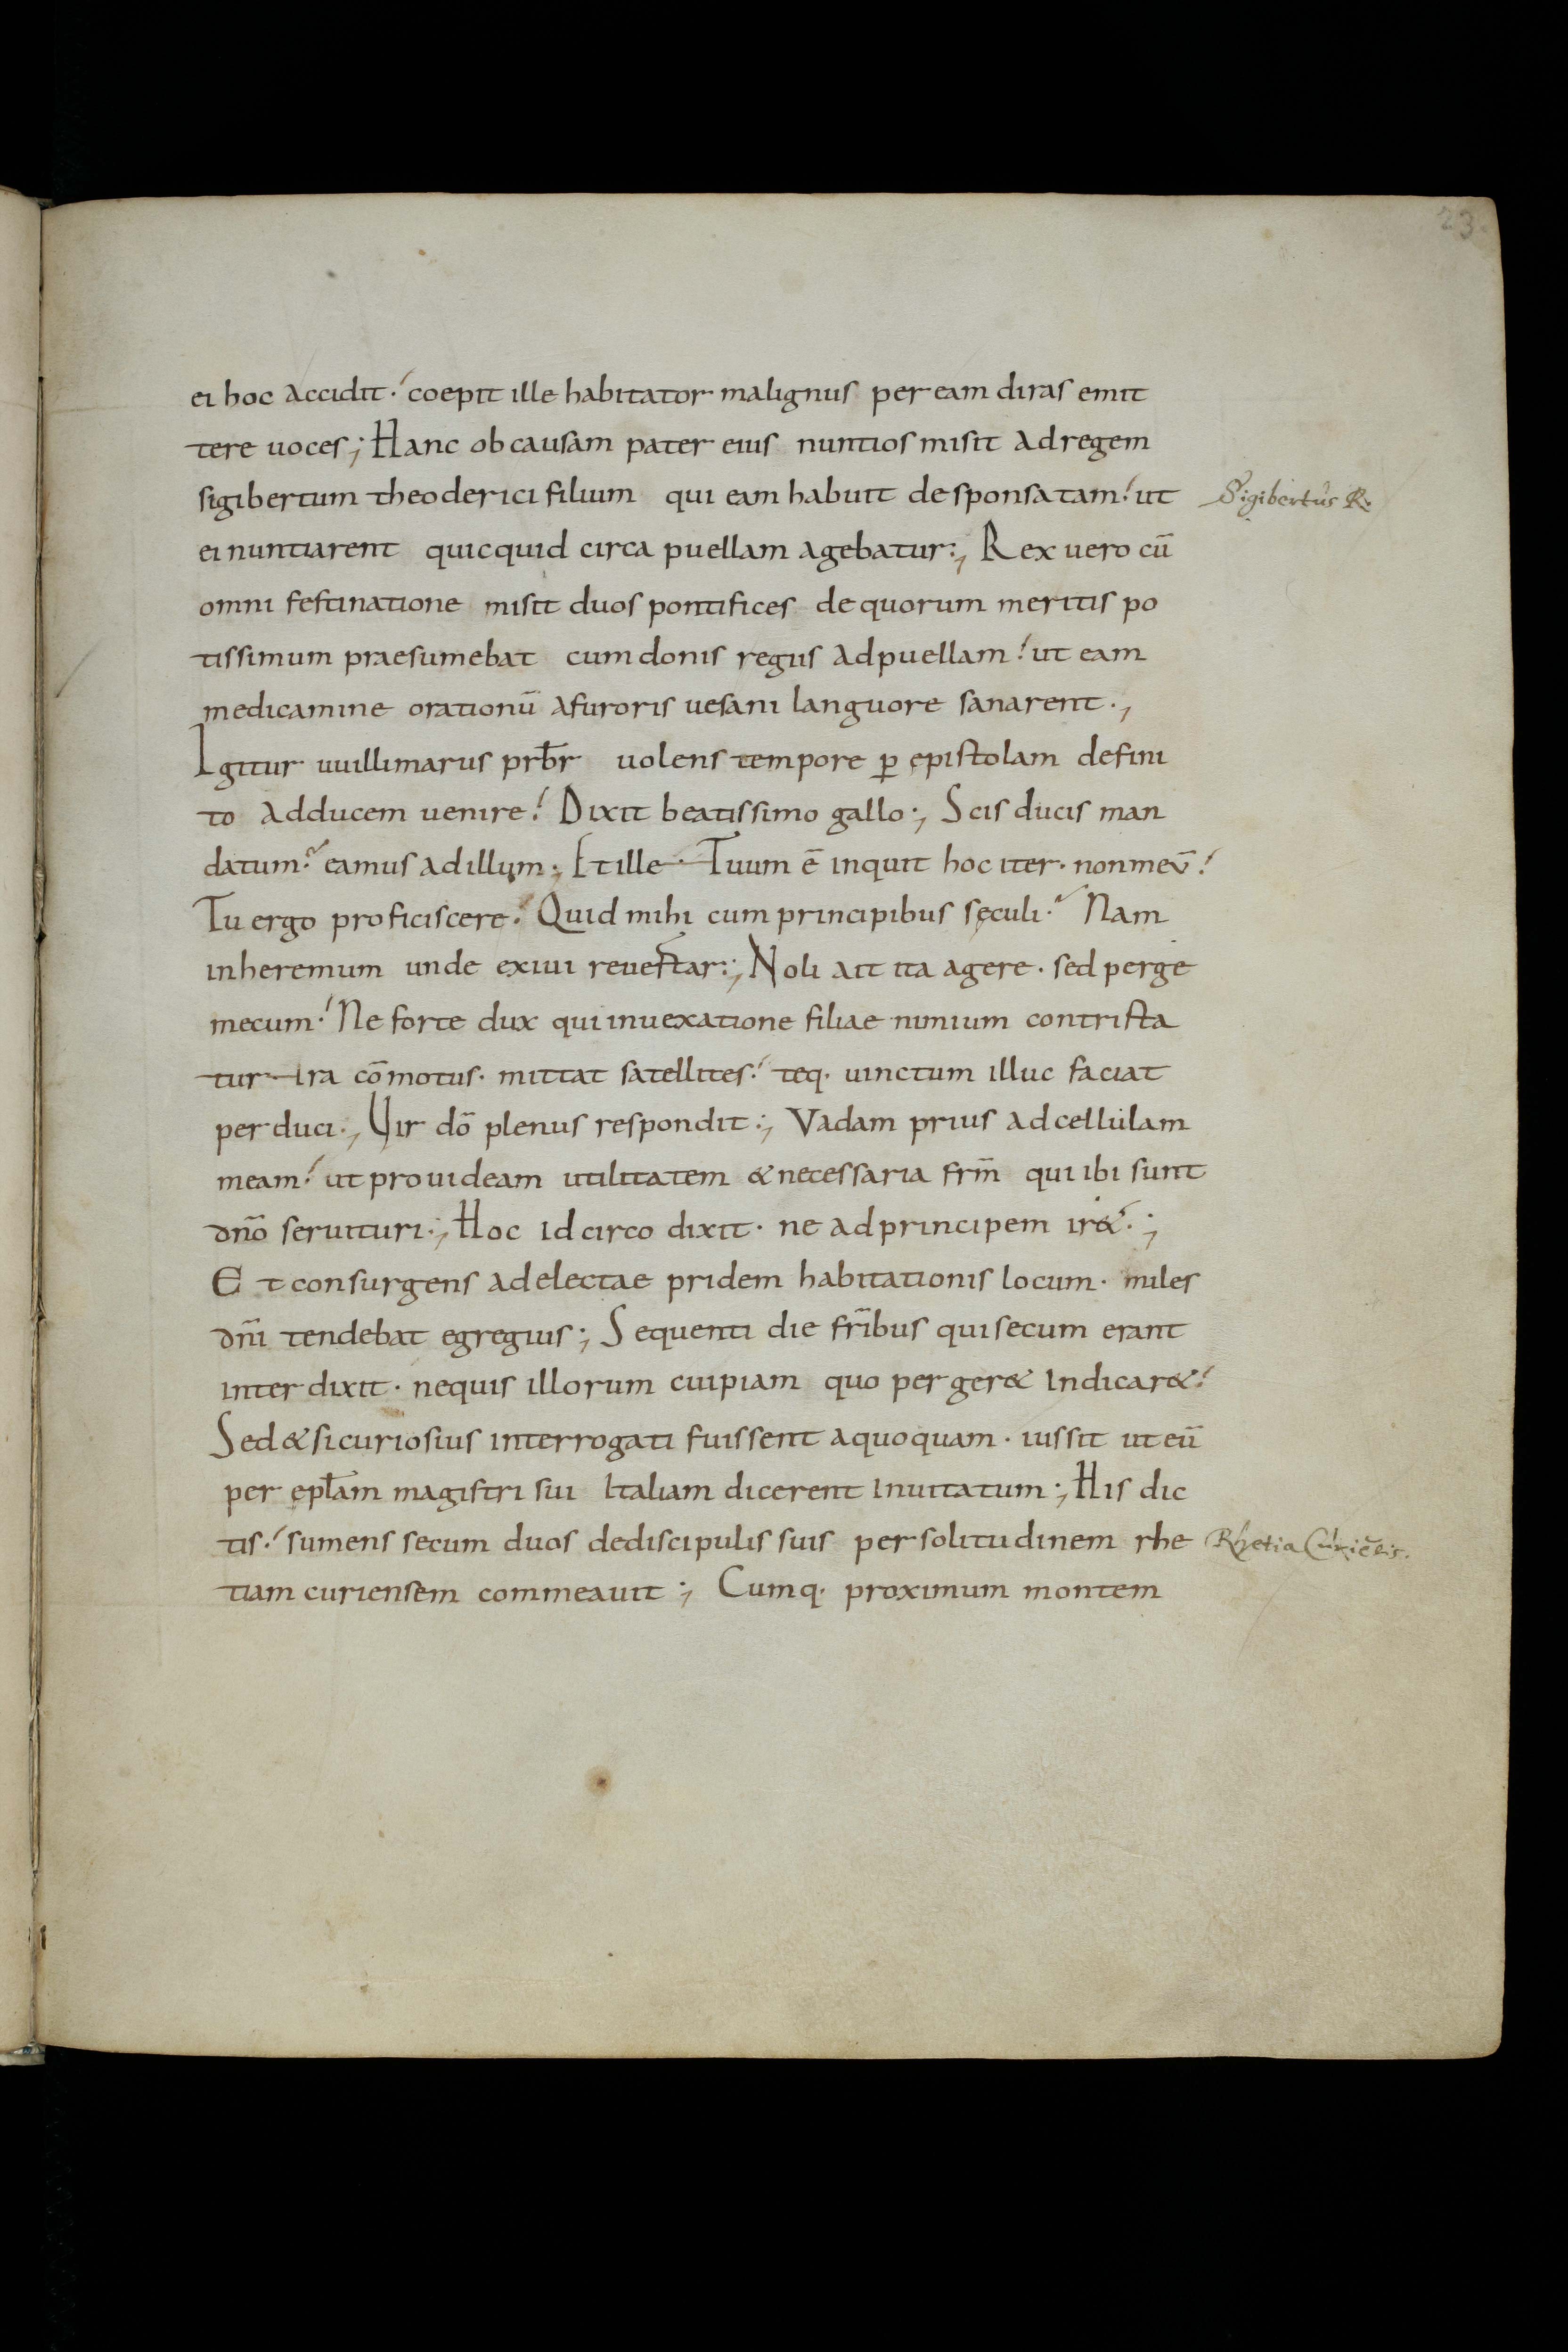 23
ei hoc accidit. coepit ille habitator malignus per eam diras emit
tere uoces; Hanc ob causam pater eius nuntios misit ad regem
sigibertum theoderici filium qui eam habuit desponsatam. ut
Sigibertus R.
ei nuntiarent quicquid circa puellam agebatur; Rex uero cū
omni festinatione misit duos pontifices de quorum meritis po
tissimum praesumebat cum donis regiis ad puellam. ut eam
medicamine orationū a furoris uesani languore sanarent.,
Igitur uuillimarus prƀr uolens tempore ꝑ epistolam defini
to ad ducem uenire. Dixit beatissimo gallo; Scis ducis man
datum. eamus ad illum; Et ille. Tuum ē inquit hoc iter. non meū.
Tu ergo proficiscere. Quid mihi cum principibus sęculi. Nam
in heremum unde exiui reuertar; Noli ait ita agere. sed perge
mecum. Ne forte dux qui in uexatione filiae nimium contrista
tur. ira cōmotus. mittat satellites. teq. uinctum illuc faciat
perduci., Uir dō plenus respondit; Vadam prius ad cellulam
meam. ut prouideam utilitatem & necessaria frm̄ qui ibi sunt
dn̄o seruituri; Hoc idcirco dixit. ne ad principem ir&.;
Et consurgens ad electae pridem habitationis locum. miles
dn̄i tendebat egregius; Sequenti die fr̄ibus qui secum erant
interdixit. ne quis illorum cuipiam quo perger& indicar&.
Sed & si curiosius interrogati fuissent a quoquam. iussit ut eū
per epl̄am magistri sui Italiam dicerent inuitatum; His dic
tis. sumens secum duos de discipulis suis per solitudinem rhe
Rhetia Curiēsis.
tiam curiensem commeauit; Cumq. proximum montem